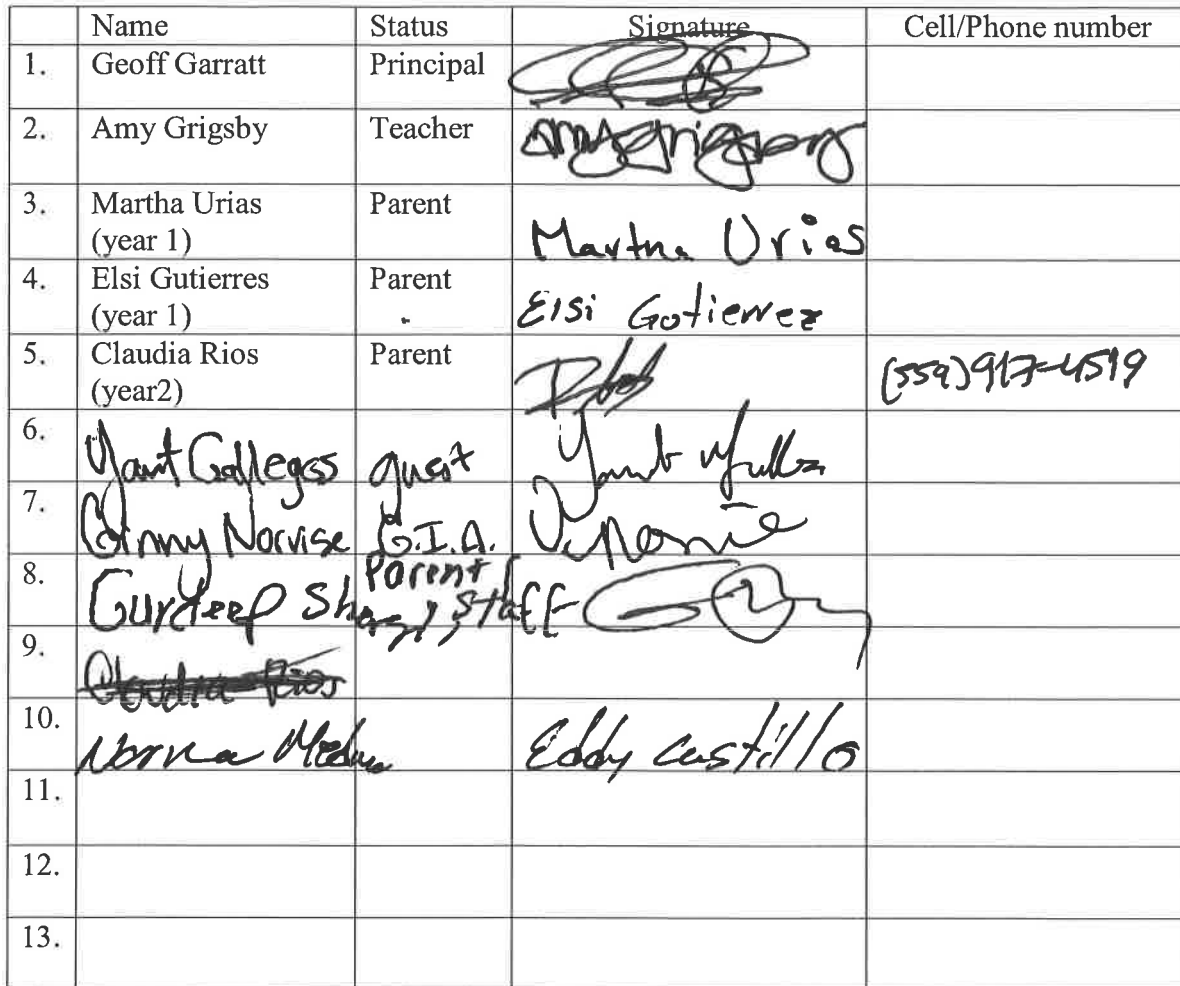 Name Status Signature Cell/Phone number
1. Geoff Garratt Principal
2. Amy Grigsby Teacher Amy Grigsby
3. Martha Urias Parent Martha Urias
(year 1)
4. Elsi Gutierres Parent Elsi Gutierrez
(year 1)
5. Claudia Rios Parent (559)917-4519
(year2)
6. Gallegos guest
7. Ginny Norvise G.I.A.
8. Gurdeep Parent / Staff
9. Claudia Rios
10. Norma Eddy Castillo
11.
12.
13.